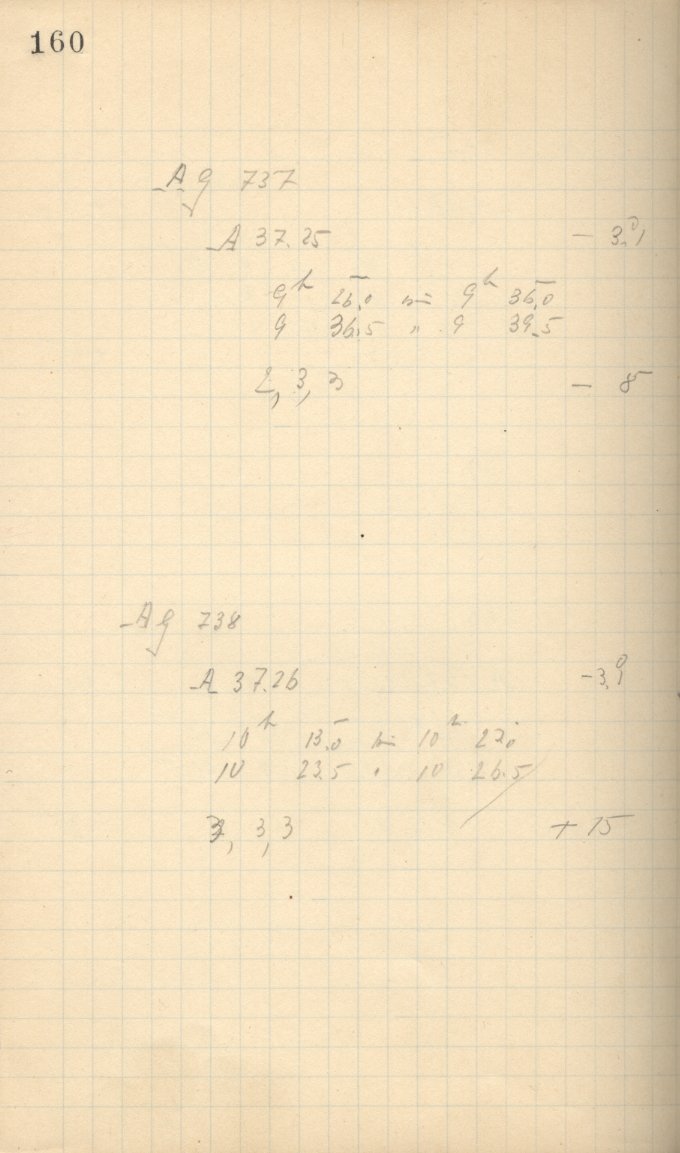 160
Ag 737
A 37.25 - 3.°1
9h 26.0 bis 9h 36.0
9 36.5 " 9 39.5
2, 3, 3 - 8
Ag 738
A 37.26 -3.°1
10h 13.0 bis 10h 23.0
10 23.5 " 10 26.5
3, 3, 3 + 15